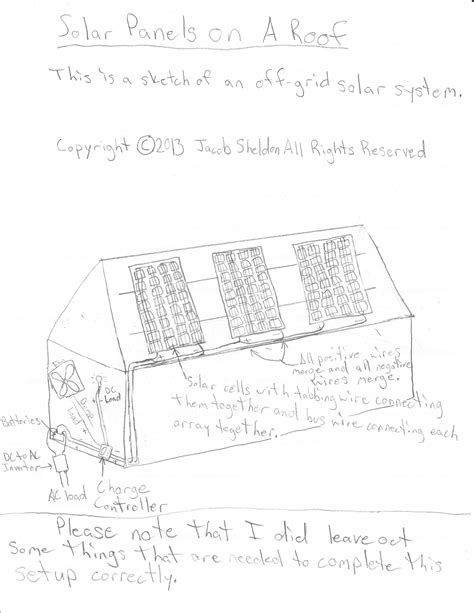 Solar Panels on A Roof
This is a sketch of an off-grid solar system.
Copyright ©2013 Jacob Sheldon All Rights Reserved
All positive wires
merge and all negative
wires merge.
Solar cells with tabbing wire connecting
them together and bus wire connecting each
array together.
DC
Load
Load
Batteries
DC to AC
Inverter
AC load
Charge
Controller
Please note that I did leave out
Some things that are needed to complete this
setup correctly.